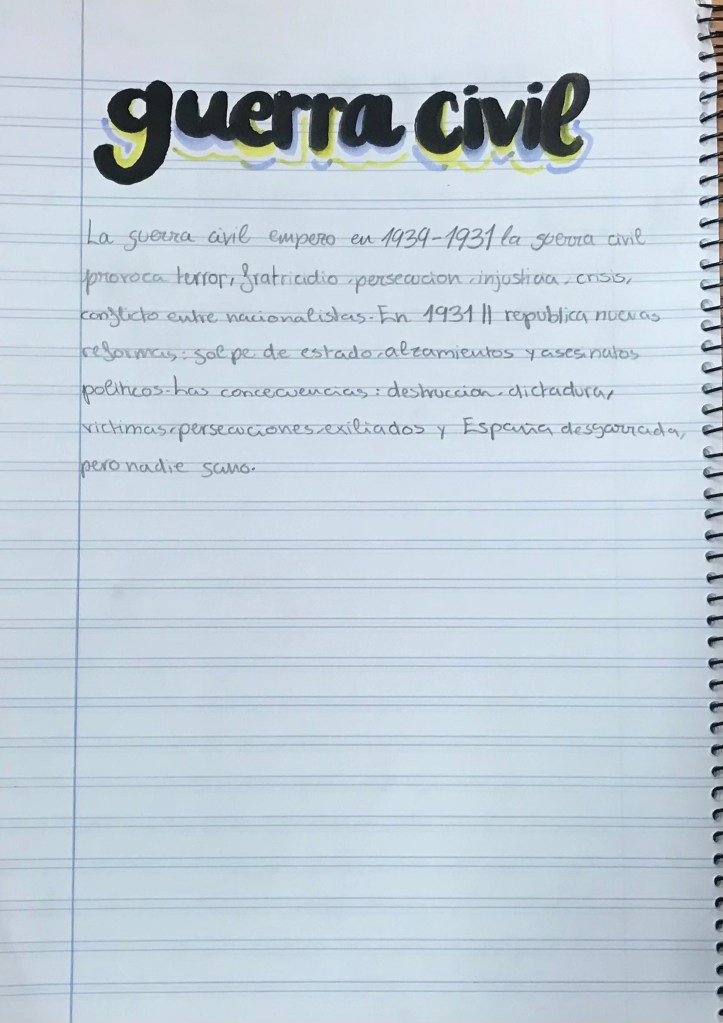 guerra civil
La guerra civil empezo en 1939-1931 la guerra civil
provoca terror, fratricidio, persecucion, injusticia, crisis,
conflicto entre nacionalistas. En 1931 II republica nuevas
reformas: golpe de estado, alzamientos y asesinatos
politicos. Las concecuencias: destruccion, dictadura,
victimas, persecuciones, exiliados y España desgarrada,
pero nadie gano.